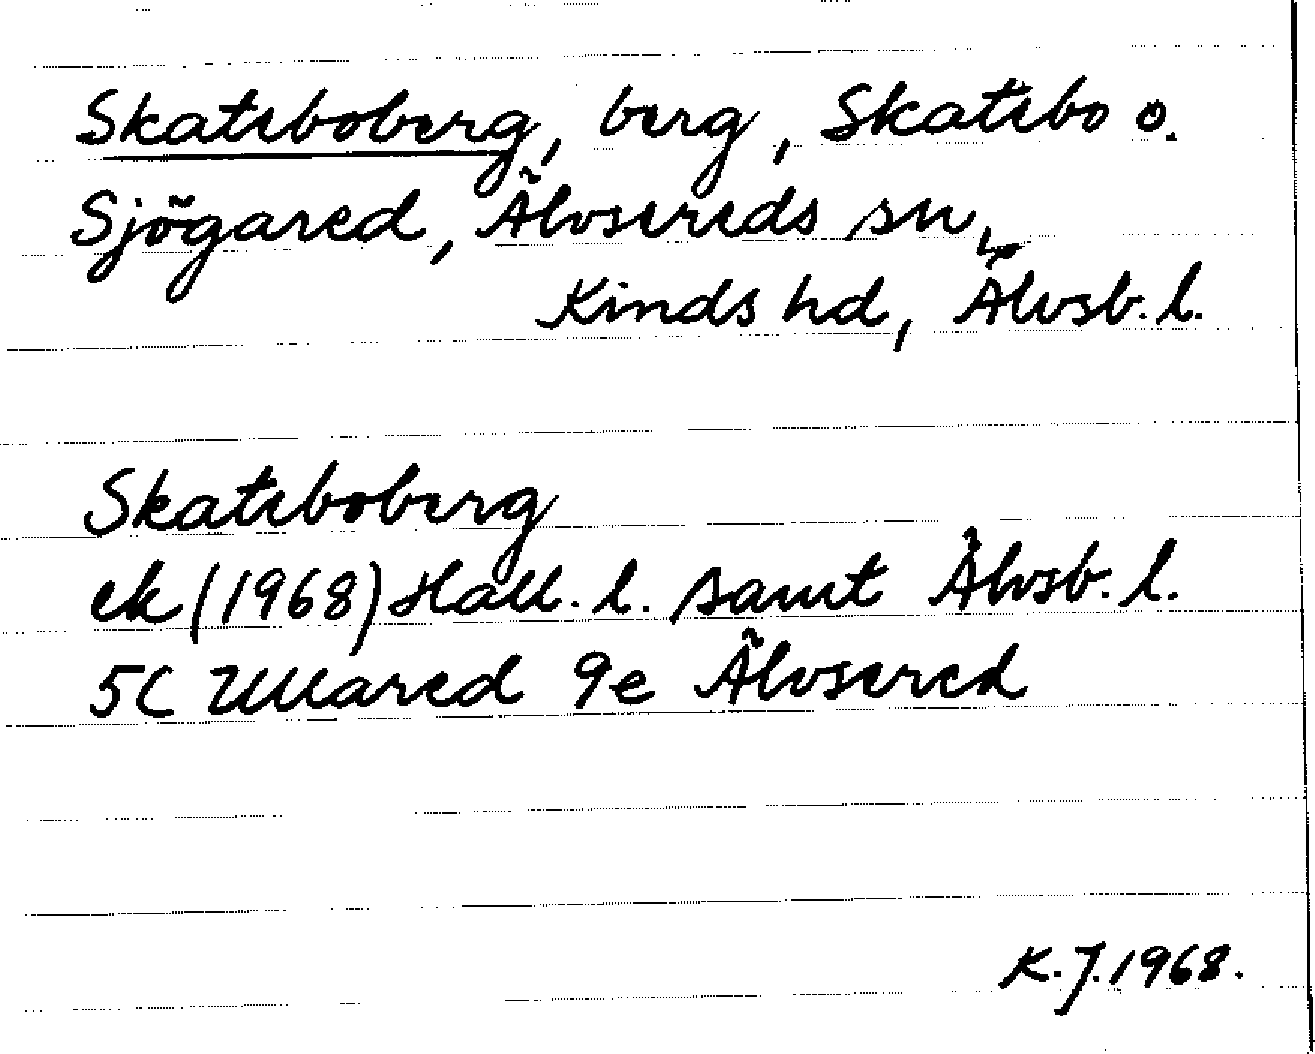 Skateboberg, berg, Skatebo o.
Sjögared, Älvsereds sn,
Kinds hd, Älvsb. l.
Skateboberg
ek (1968) Hall. l. samt Älvsb. l.
5C Ullared 9e Älvsered
K. J. 1968.